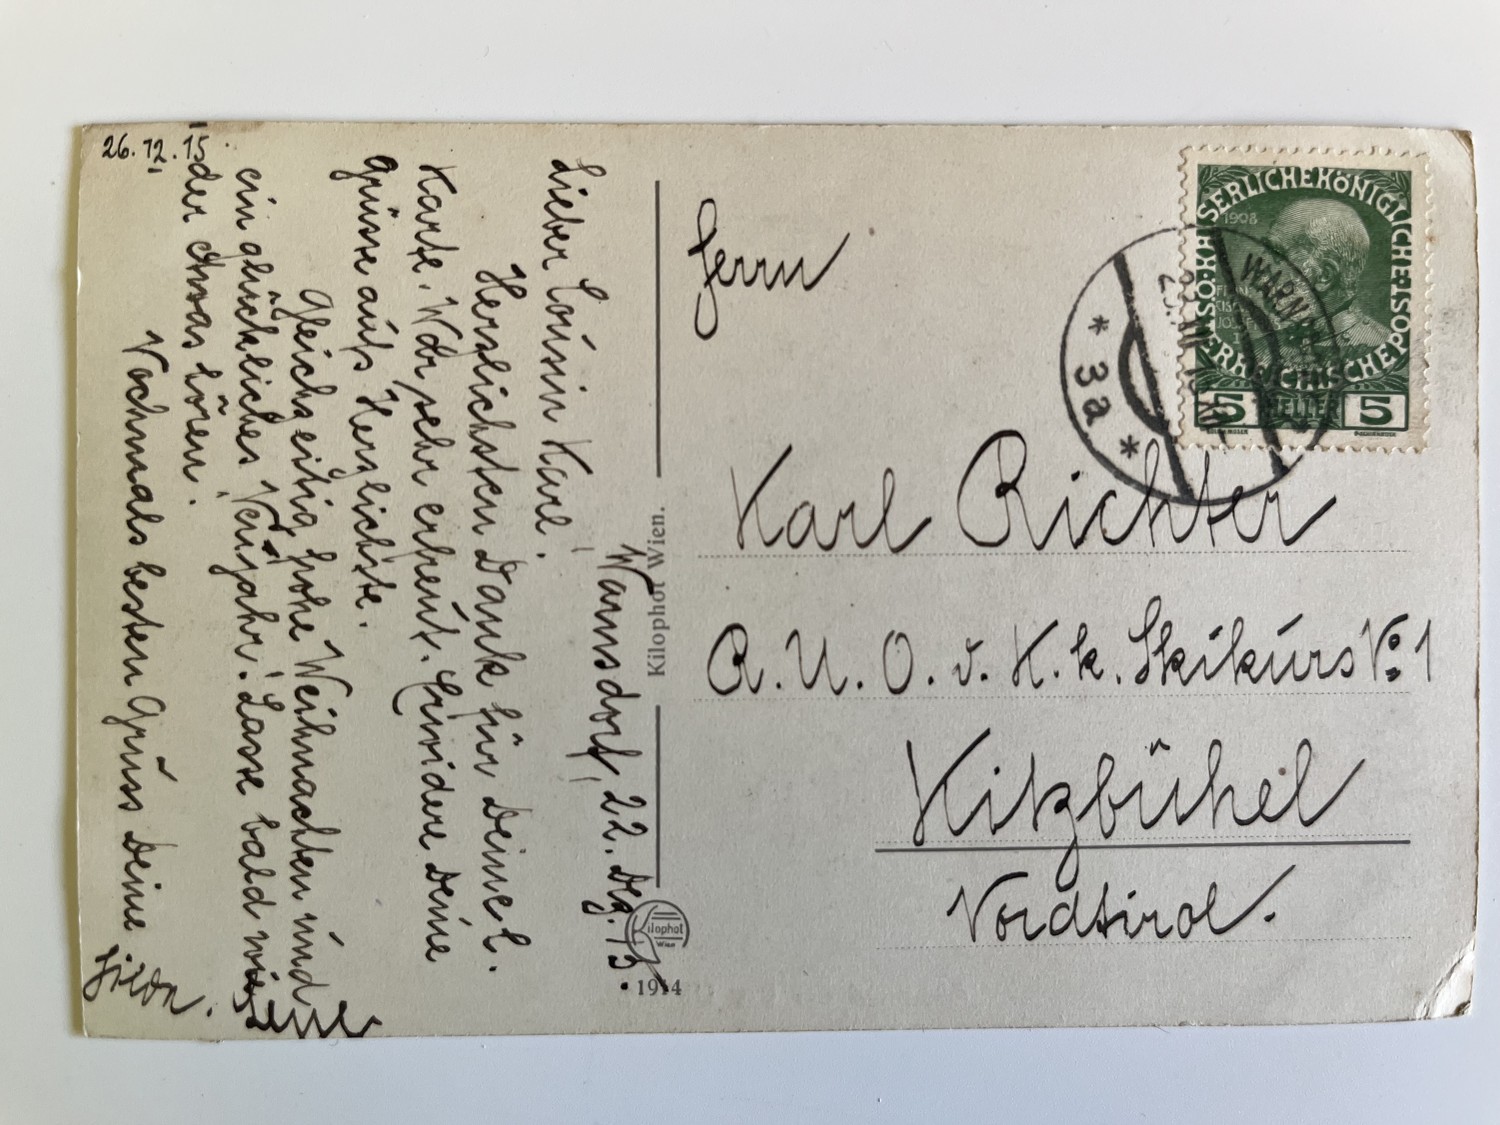 26.12.15
Warnsdorf, 22. Dez. 15
Lieber Cousin Karl.
Herzlichsten Dank für Deine l.
Karte. War sehr erfreut. Erwidere Deine
Grüsse aufs Herzlichste.
Gleichzeitig frohe Weihnachten und
ein glückliches Neujahr! Lasse bald wie
der etwas hören.
Nochmals besten Gruss Deine
Hilda.
Kilophot Wien.
Kilophot
Wien
1914
Herrn
Karl Richter
A. U. O. v. K. k. Skikurs No. 1
Kitzbühel
Nordtirol.
KAISERLICHE KÖNIGLICHE
ÖSTERREICHISCHE POST
1908
5 HELLER 5
WARN
* 3a *